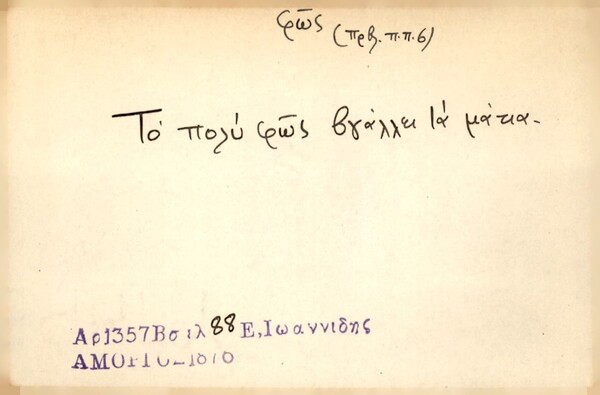 φῶς (πρβ. π.π. 6)
Τό πολύ φῶς βγάλλει τά μάτια.
Αρ1357Βσιλ 88 Ε,Ιωαννιδης